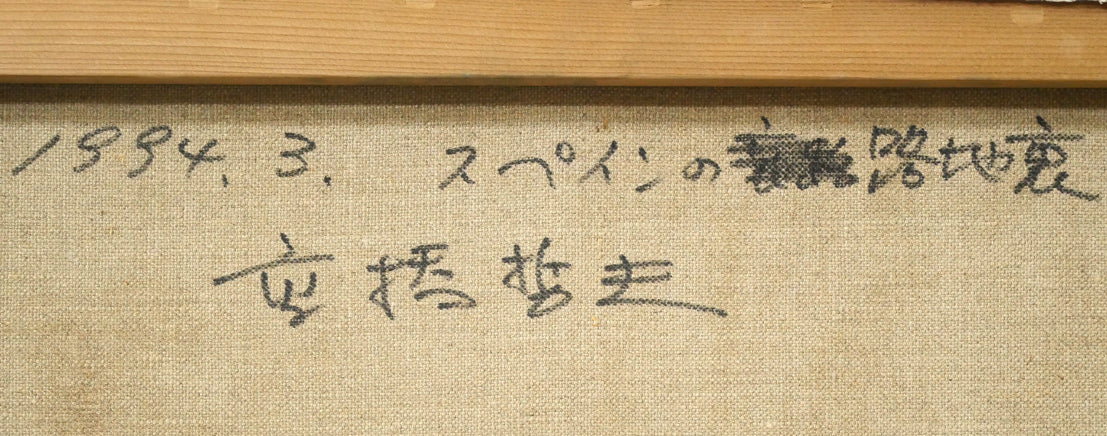 1994.3. スペインの路地裏
高橋哲夫